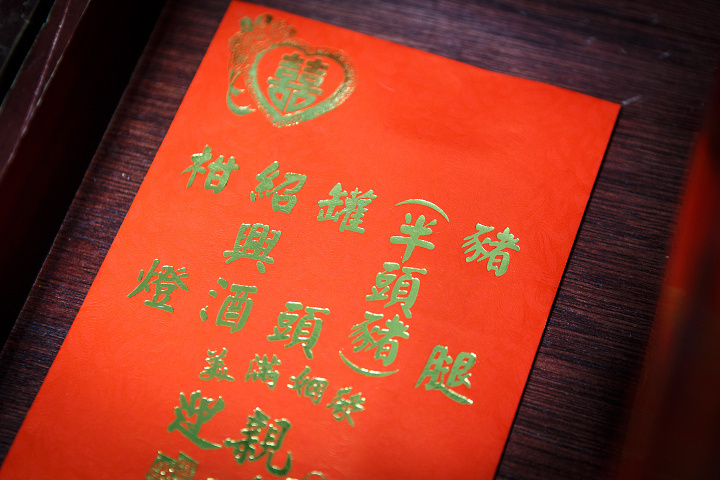 囍
豬腿
(半頭豬)
罐頭
紹興酒
柑燈
美滿姻緣
迎親